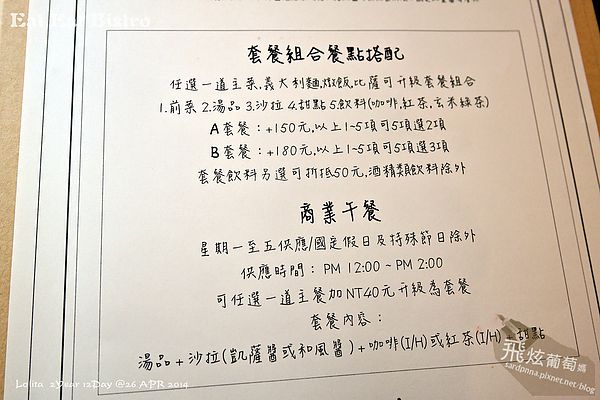 Eat Eat Bistro
套餐組合餐點搭配
任選一道主菜.義大利麵.燉飯.比薩可升級套餐組合
1.前菜 2.湯品 3.沙拉 4.甜點 5.飲料(咖啡.紅茶.玄米綠茶)
A套餐：+150元,以上1~5項可5項選2項
B套餐：+180元,以上1~5項可5項選3項
套餐飲料另選可折抵50元,酒精類飲料除外
商業午餐
星期一至五供應/國定假日及特殊節日除外
供應時間：PM 12:00 ~ PM 2:00
可任選一道主餐加NT40元升級為套餐
套餐內容：
湯品+沙拉(凱薩醬或和風醬)+咖啡(I/H)或紅茶(I/H)+甜點
飛炫葡萄媽
sardpnna.pixnet.net/blog
Lolita 2Year 12Day @26 APR 2014